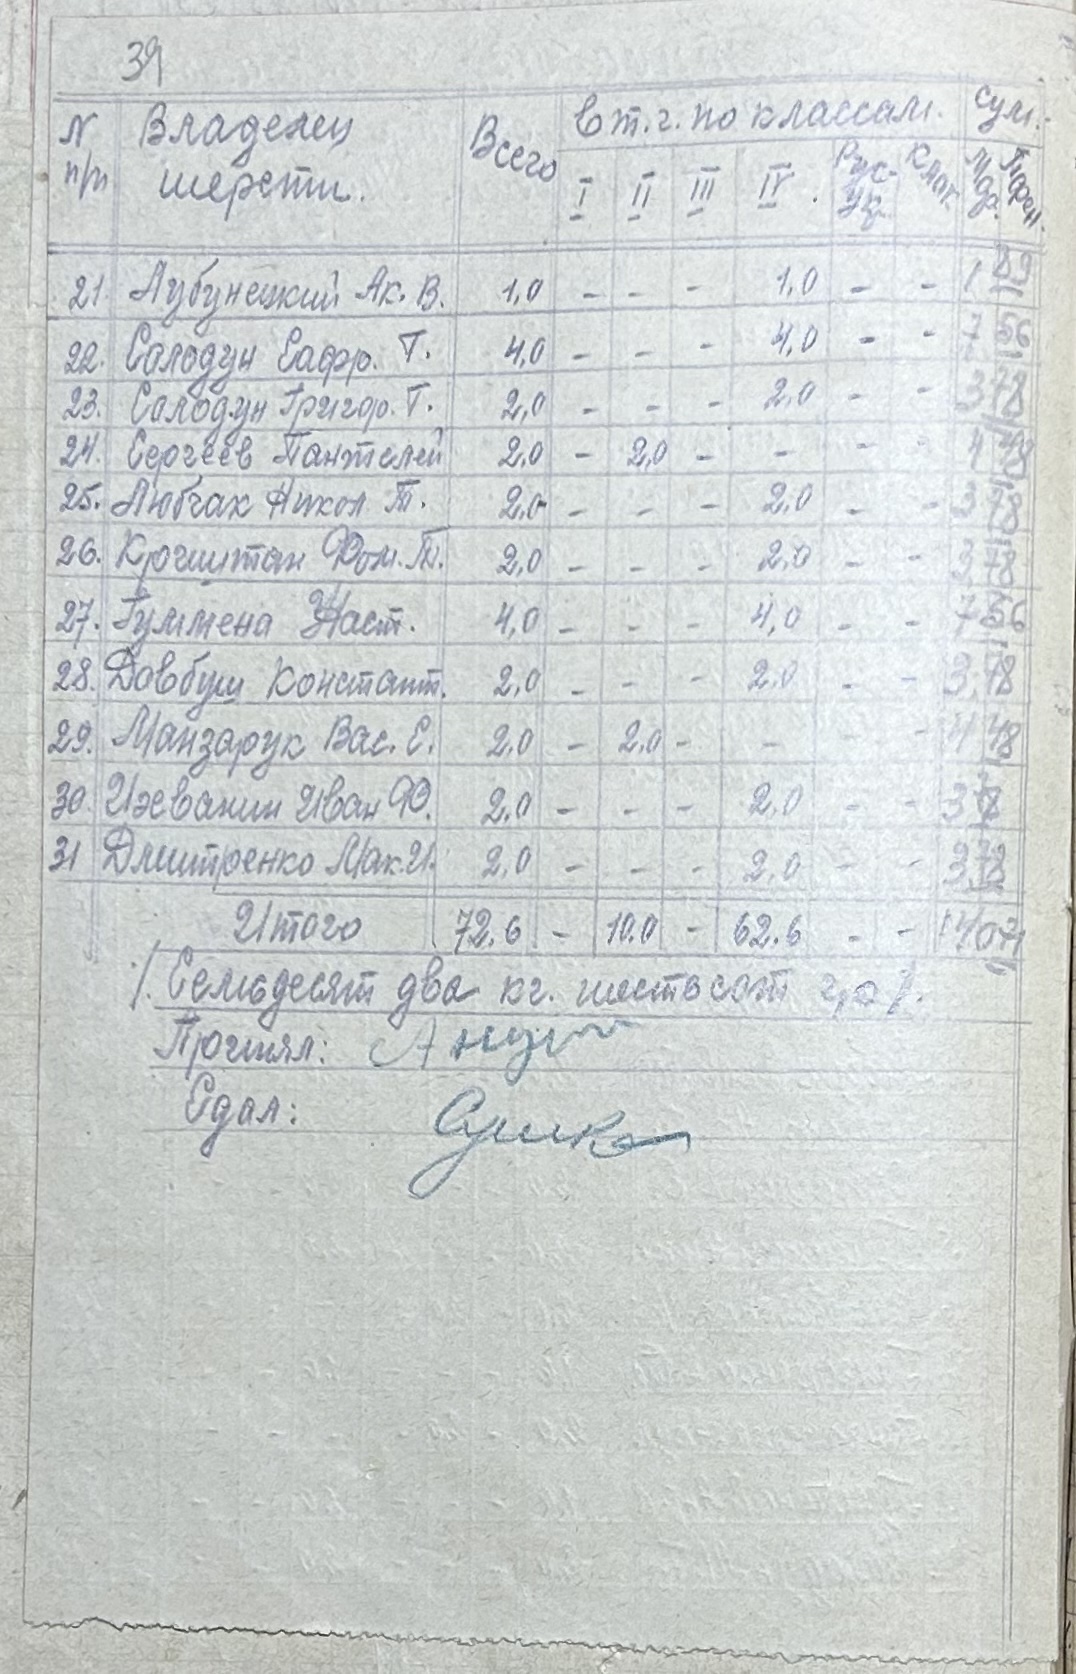 39
N п/п Владелец шерсти. Всего в т.ч. по классам. Сум.
I II III IV Рус. Клак.
21 Лубунецкий Ак. В. 1,0 - - - 1,0 - - 1 89
22. Солодун Еафр. Т. 4,0 - - - 4,0 - - 7 56
23. Солодун Григор. Т. 2,0 - - - 2,0 - - 3 78
24. Сергеев Пантелей 2,0 - 2,0 - - - - 4 48
25. Любчак Никол Т. 2,0 - - - 2,0 - - 3 78
26. Крочиштан Фом. Т. 2,0 - - - 2,0 - - 3 78
27. Гуммена Наст. 4,0 - - - 4,0 - - 7 56
28. Довбуш Констант. 2,0 - - - 2,0 - - 3,78
29. Манзарук Вас. Е. 2,0 - 2,0 - - - - 4 48
30. Ижванин Иван Ф. 2,0 - - - 2,0 - - 3 78
31 Дмитренко Мак. И. 2,0 - - - 2,0 - - 3 78
Итого 72.6 - 10.0 - 62.6 - -
/. Семьдесят два кг. шестьсот гр/.
Принял:
Сдал: